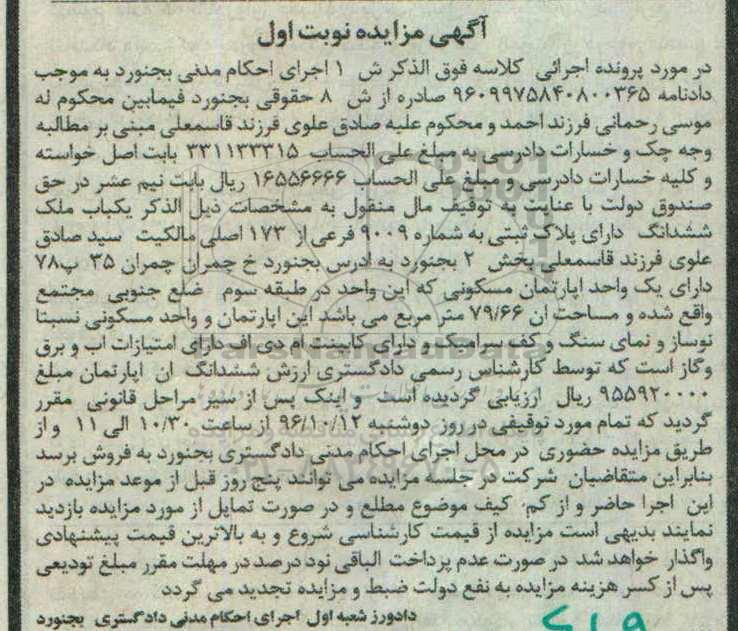 آگهی مزایده نوبت اول
در مورد پرونده اجرائی کلاسه فوق الذکر ش ۱ اجرای احکام مدنی بجنورد به موجب
دادنامه ۹۶۰۹۹۷۵۸۴۰۸۰۰۳۶۵ صادره از ش ۸ حقوقی بجنورد فیمابین محکوم له
موسی رحمانی فرزند احمد و محکوم علیه صادق علوی فرزند قاسمعلی مبنی بر مطالبه
وجه چک و خسارات دادرسی به مبلغ علی الحساب ۳۳۱۱۳۳۳۱۵ بابت اصل خواسته
و کلیه خسارات دادرسی و مبلغ علی الحساب ۱۶۵۵۶۶۶۶ ریال بابت نیم عشر در حق
صندوق دولت با عنایت به توقیف مال منقول به مشخصات ذیل الذکر یکباب ملک
ششدانگ دارای پلاک ثبتی به شماره ۹۰۰۹ فرعی از ۱۷۳ اصلی مالکیت سید صادق
علوی فرزند قاسمعلی بخش ۲ بجنورد به ادرس بجنورد خ چمران چمران ۳۵ پ۷۸
دارای یک واحد اپارتمان مسکونی که این واحد در طبقه سوم ضلع جنوبی مجتمع
واقع شده و مساحت ان ۷۹/۶۶ متر مربع می باشد این اپارتمان و واحد مسکونی نسبتا
نوساز و نمای سنگ و کف سرامیک و دارای کابینت ام دی اف دارای امتیازات اب و برق
وگاز است که توسط کارشناس رسمی دادگستری ارزش ششدانگ ان اپارتمان مبلغ
۹۵۵۹۲۰۰۰۰ ریال ارزیابی گردیده است و اینک پس از سیر مراحل قانونی مقرر
گردید که تمام مورد توقیفی در روز دوشنبه ۹۶/۱۰/۱۲ از ساعت ۱۰/۳۰ الی ۱۱ و از
طریق مزایده حضوری در محل اجرای احکام مدنی دادگستری بجنورد به فروش برسد
بنابراین متقاضیان شرکت در جلسه مزایده می توانند پنج روز قبل از موعد مزایده در
این اجرا حاضر و از کم، کیف موضوع مطلع و در صورت تمایل از مورد مزایده بازدید
نمایند بدیهی است مزایده از قیمت کارشناسی شروع و به بالاترین قیمت پیشنهادی
واگذار خواهد شد در صورت عدم پرداخت الباقی نود درصد در مهلت مقرر مبلغ تودیعی
پس از کسر هزینه مزایده به نفع دولت ضبط و مزایده تجدید می گردد
دادورز شعبه اول اجرای احکام مدنی دادگستری بجنورد
ParsNamadData